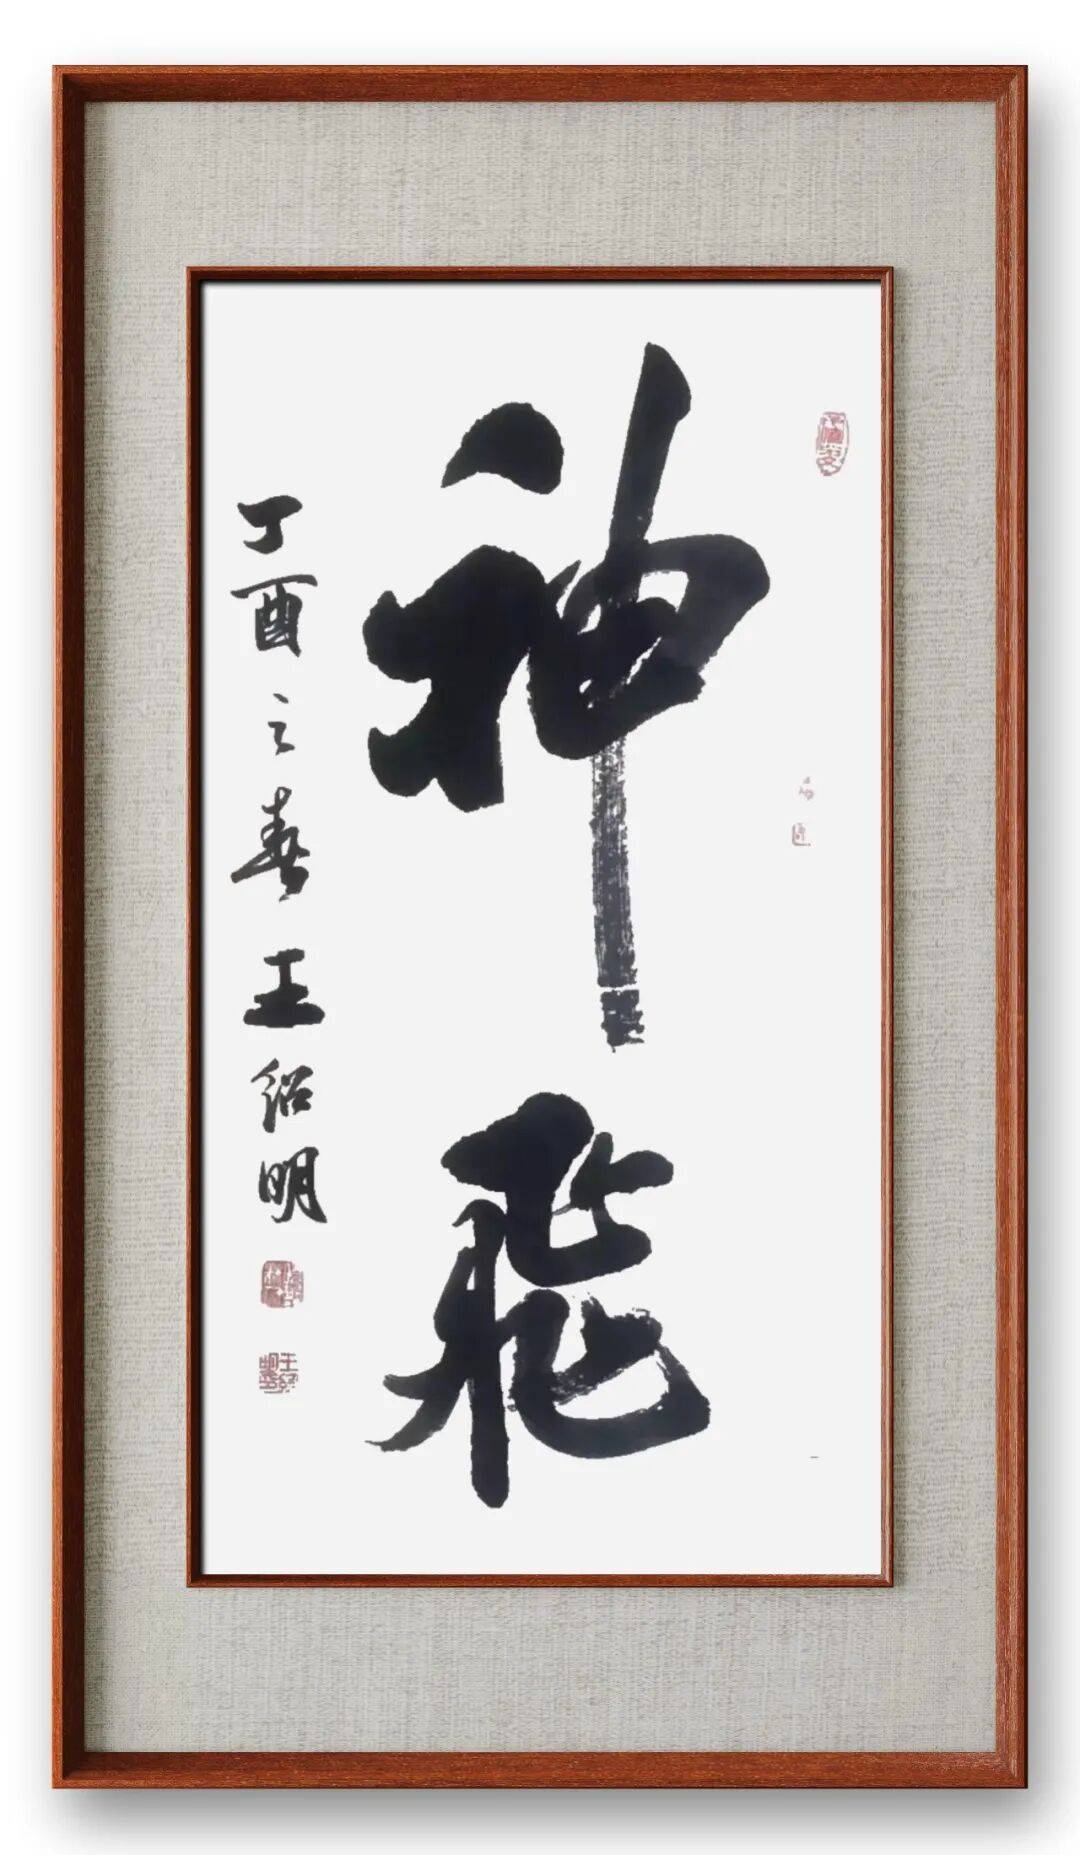 神飛
丁酉之春 王绍明